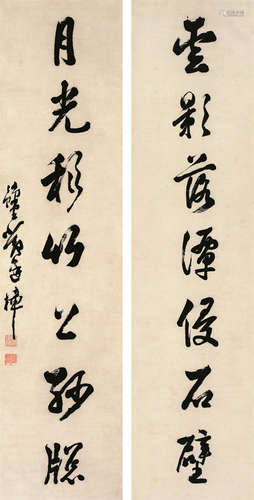 雲影落潭侵石壁
月光移竹上紗牕